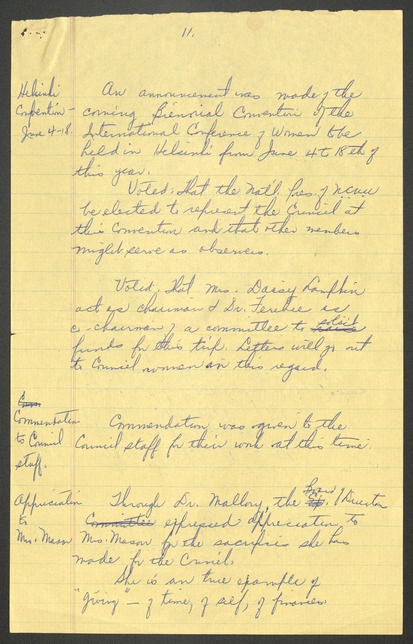 11.
Helsinki
Convention -
June 4-18.
An announcement was made of the
coming Biennial Convention of the
International Conference of Women to be
held in Helsinki from June 4 to 18th of
this year.
Voted: That the Nat'l Pres. of NCNW
be elected to represent the Council at
this Convention and that other members
might serve as observers.
Voted: that Mrs. Daisy Lampkin
act as chairman & Dr. Ferebee as
co-chairman of a committee to solicit
funds for this trip. Letters will go out
to Council women in this regard.
Com
Commendation
to Council
staff.
Commendation was given to the
Council staff for their work at this time.
Appreciation
to
Mrs. Mason
Through Dr. Mallory, the Board of Directors
Committee expressed appreciation to
Mrs. Mason for the sacrifices she has
made for the Council.
She is an true example of
"giving" - of time, of self, of finances